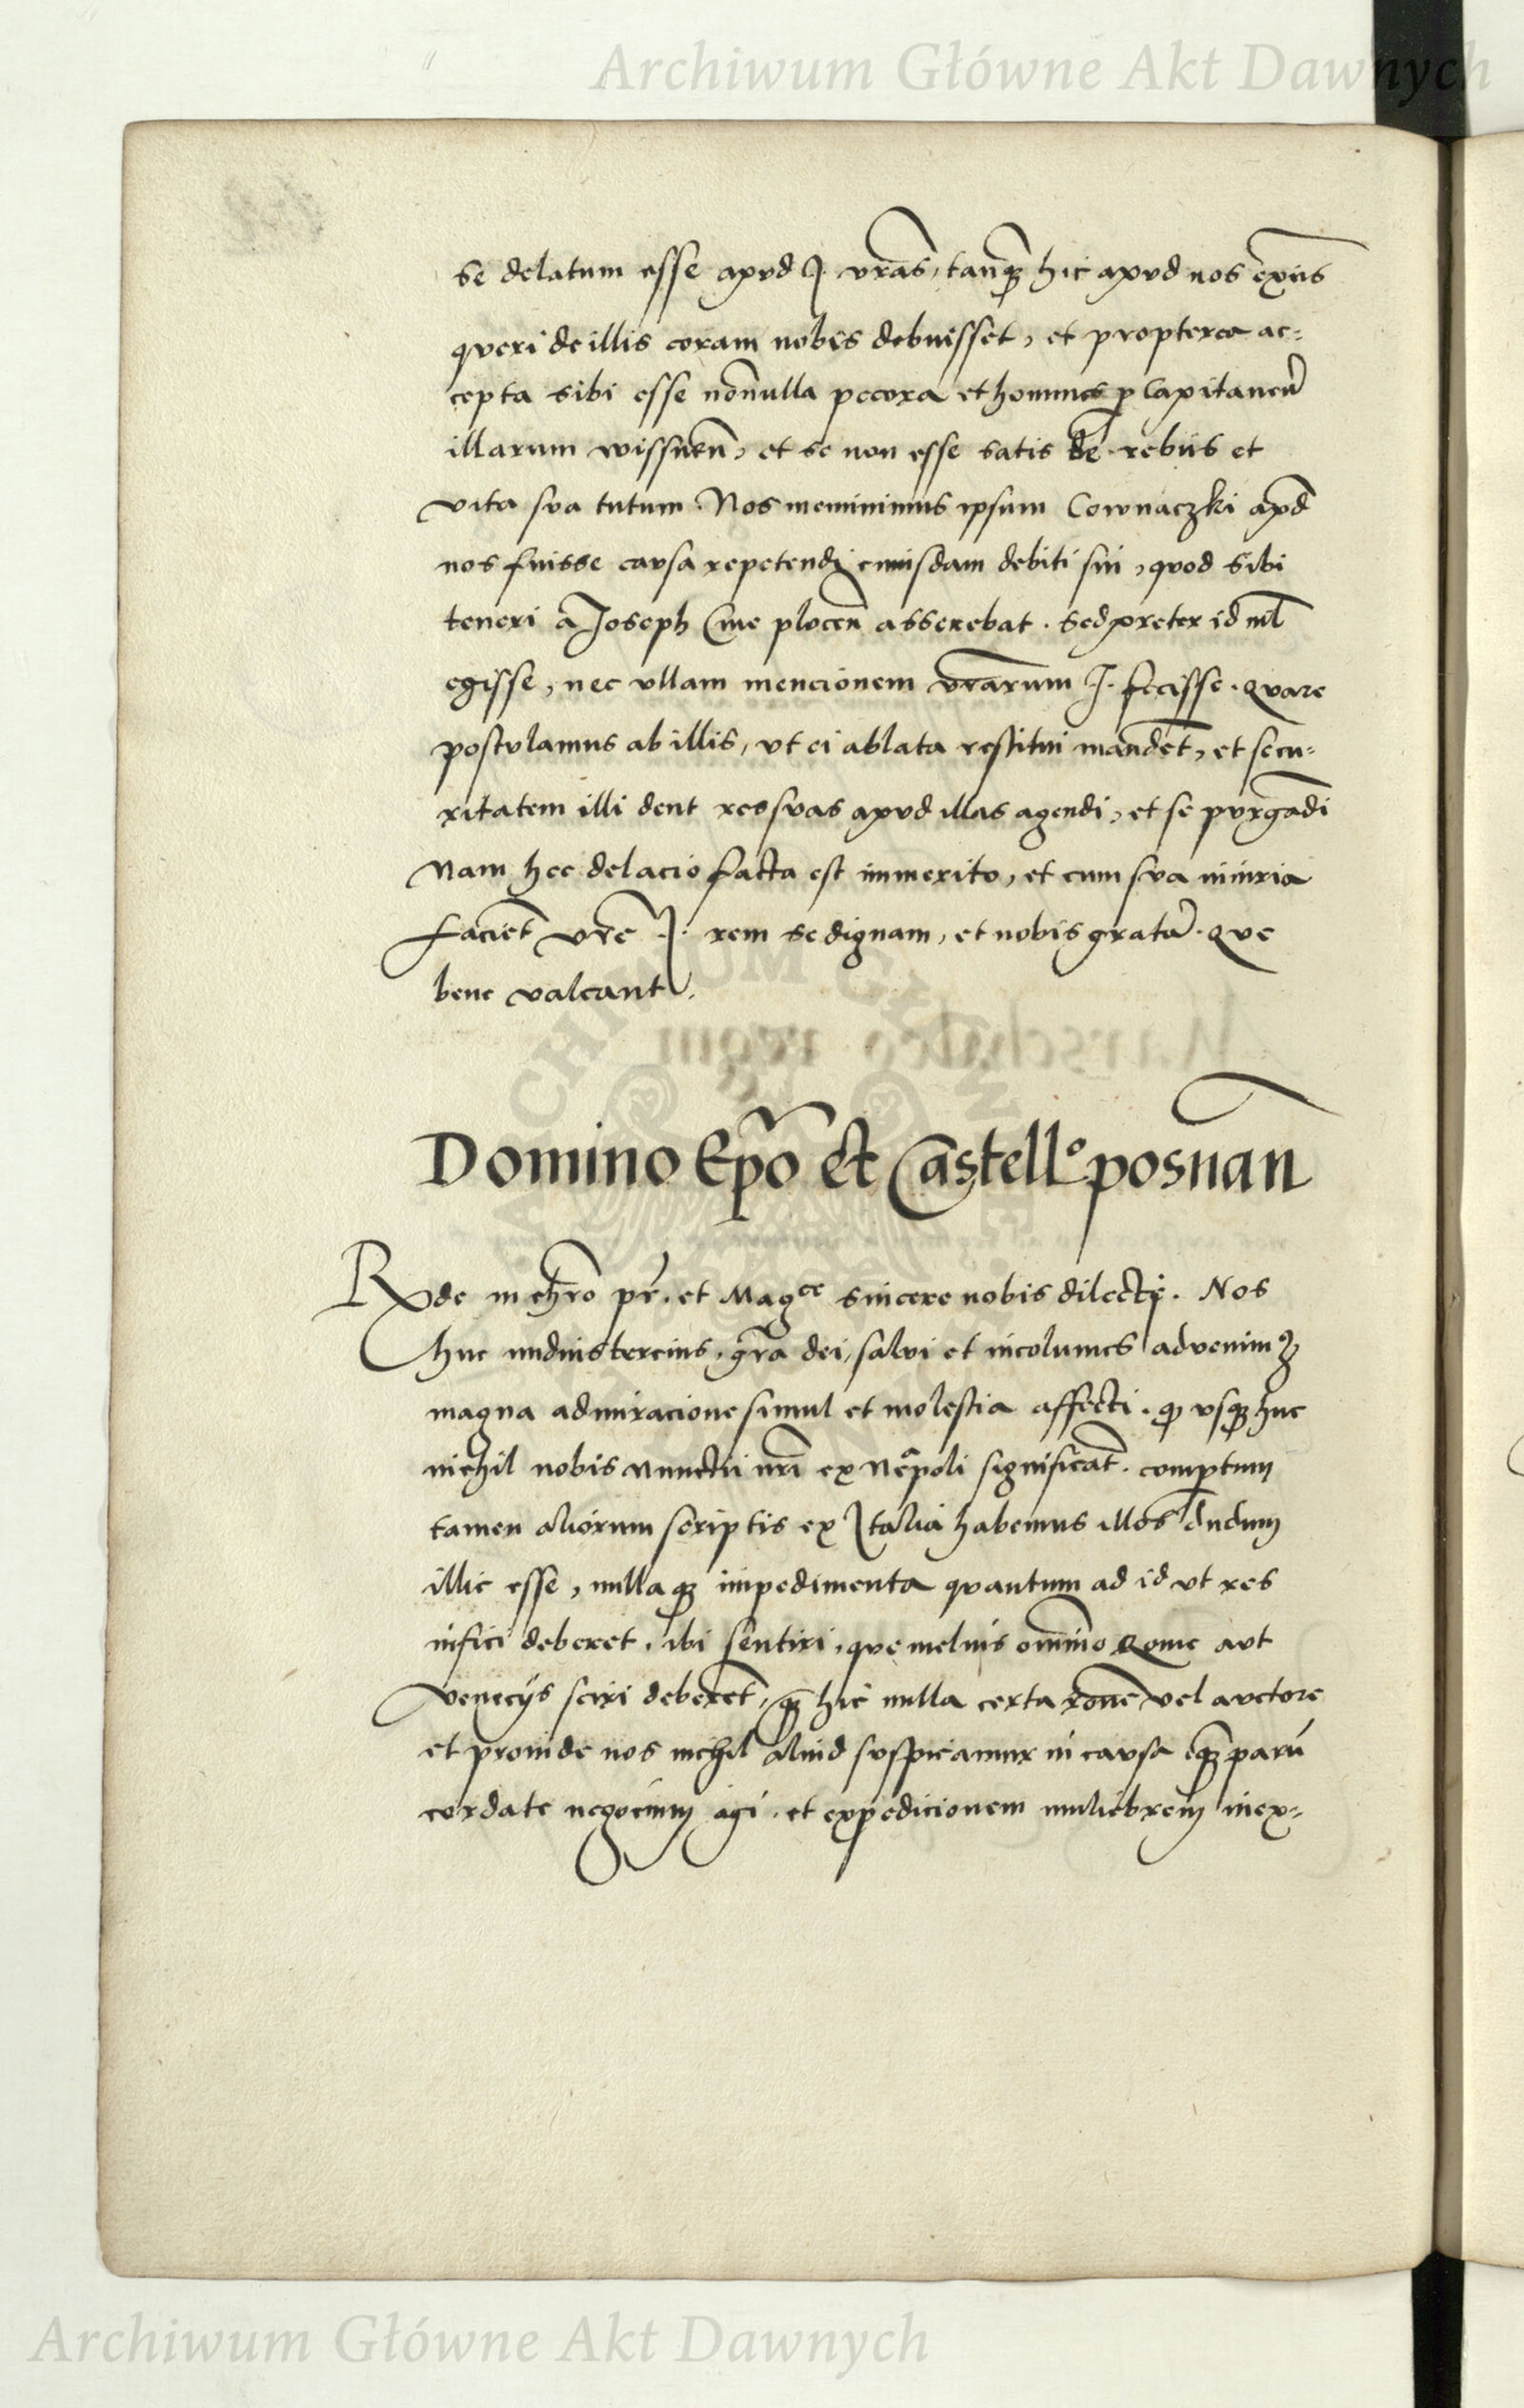 Archiwum Główne Akt Dawnych
se delatum esse apud I. vras, tanq̃ hic apud nos existens
queri de illis coram nobis debuisset, et propterea ac=
cepta sibi esse nonnulla pecora et homines p Capitaneũ
illarum wissnen̄, et se non esse satis de rebus et
vita sua tutum. Nos meminimus ipsum Cownaczki apd̄
nos fuisse causa repetendi cuiusdam debiti sui, quod sibi
teneri a Joseph Cive plocen̄ asserebat. Sed preter id nil
egisse, nec ullam mencionem vrarum I. fecisse. Quare
postulamus ab illis, ut ei ablata restitui mandēt, et secu=
ritatem illi dent res suas apud illas agendi, et se purgādi
Nam hec delacio facta est immerito, et cum sua iniuria
faciēt vre I. rem se dignam, et nobis gratā. Que
bene valeant.
Domino Ep̄o et Castell.º posnan̄
Rx̄de in chr̄o pr̄. et Mag.ce sincere nobis dilecti. Nos
huc nudius tercius, gr̄a dei, salvi et incolumes advenim9
magna admiracione simul et molestia affecti. q usq̃ huc
nichil nobis nunctii nr̄i ex Neapoli significāt. compertum
tamen aliorum scriptis ex Italia habemus illos dudum
illic esse, nullaq̃ impedimenta quantum ad id ut res
infici deberet, ibi sentiri, que melius omnino Rome aut
Venecijs sciri deberēt, q̃ hic nulla certa rōne vel auctore
et proinde nos nichil aliud suspicamur in causa eē q̃ parū
cordate negocium agi. et expedicionem muliebrem inex=
Archiwum Główne Akt Dawnych